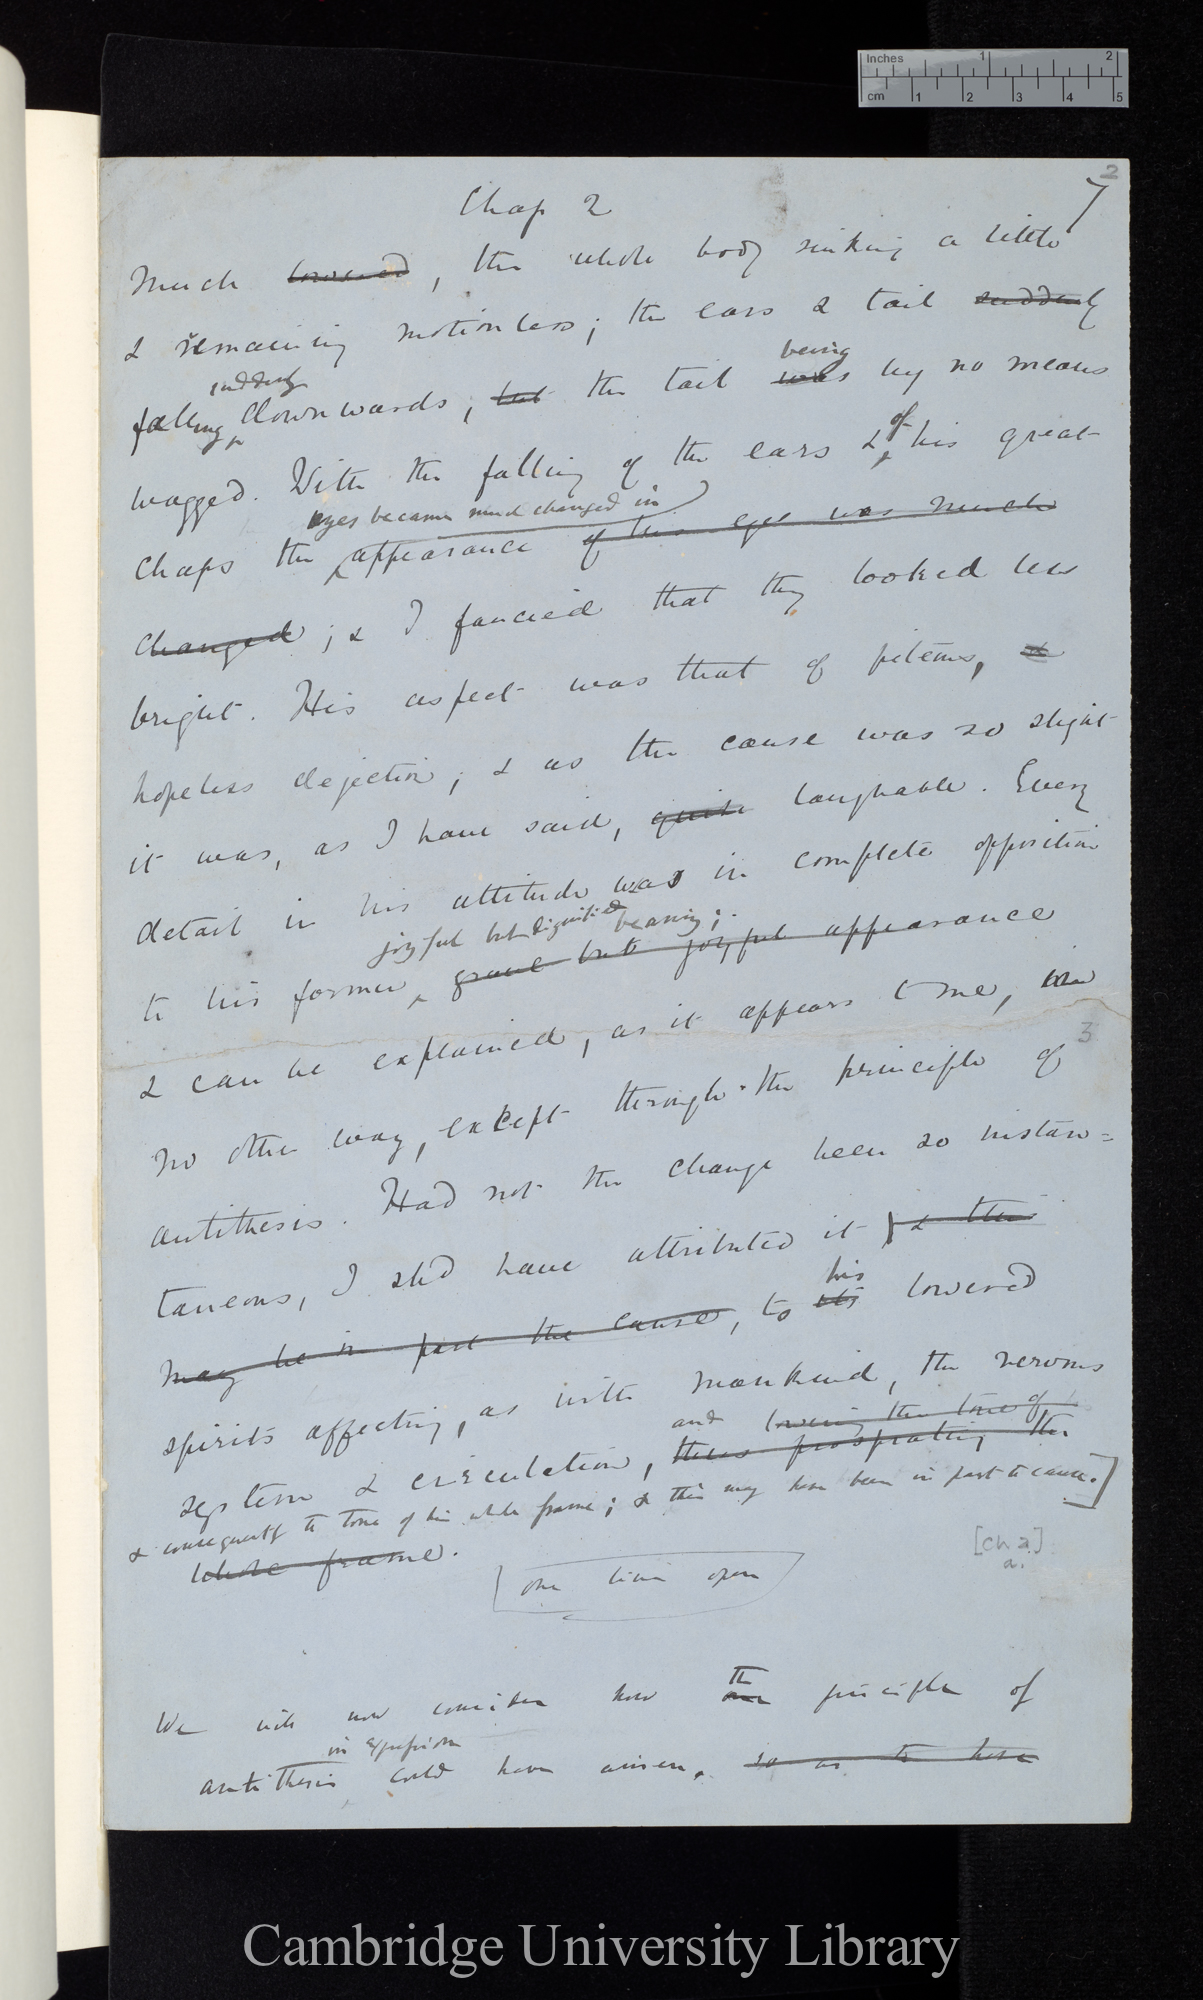 Inches 1 2
cm 1 2 3 4 5
2
Chap 2
7
Much lowered, the whole body sinking a little
& remaining motionless; the ears & tail suddenly
suddenly being
falling downwards, but the tail was by no means
of
wagged. With the falling of the ears & his great
eyes became much changed in
chaps the appearance of his eyes was much
changed; & I fancied that they looked less
bright. His aspect was that of piteous, &
hopeless dejection; & as the cause was so slight
it was, as I have said, quite laughable. Every
detail in his attitude was in complete opposition
joyful but dignified bearing;
to his former grave but joyful appearance
& can be explained, as it appears to me, in
3
no other way, except through the principle of
antithesis. Had not the change been so instan=
taneous, I shd have attributed it & this
his
may be in part the cause, to its lowered
spirits affecting, as with mankind, the nervous
and lowering the tone of
system & circulation, thus prostrating the
& consequently the tone of his whole frame; & this may have been in part the cause.]
whole frame.
[Ch 2]
a.
one line open
the
We will now consider how our principle of
in expression
antithesis could have arisen. so as to have
Cambridge University Library